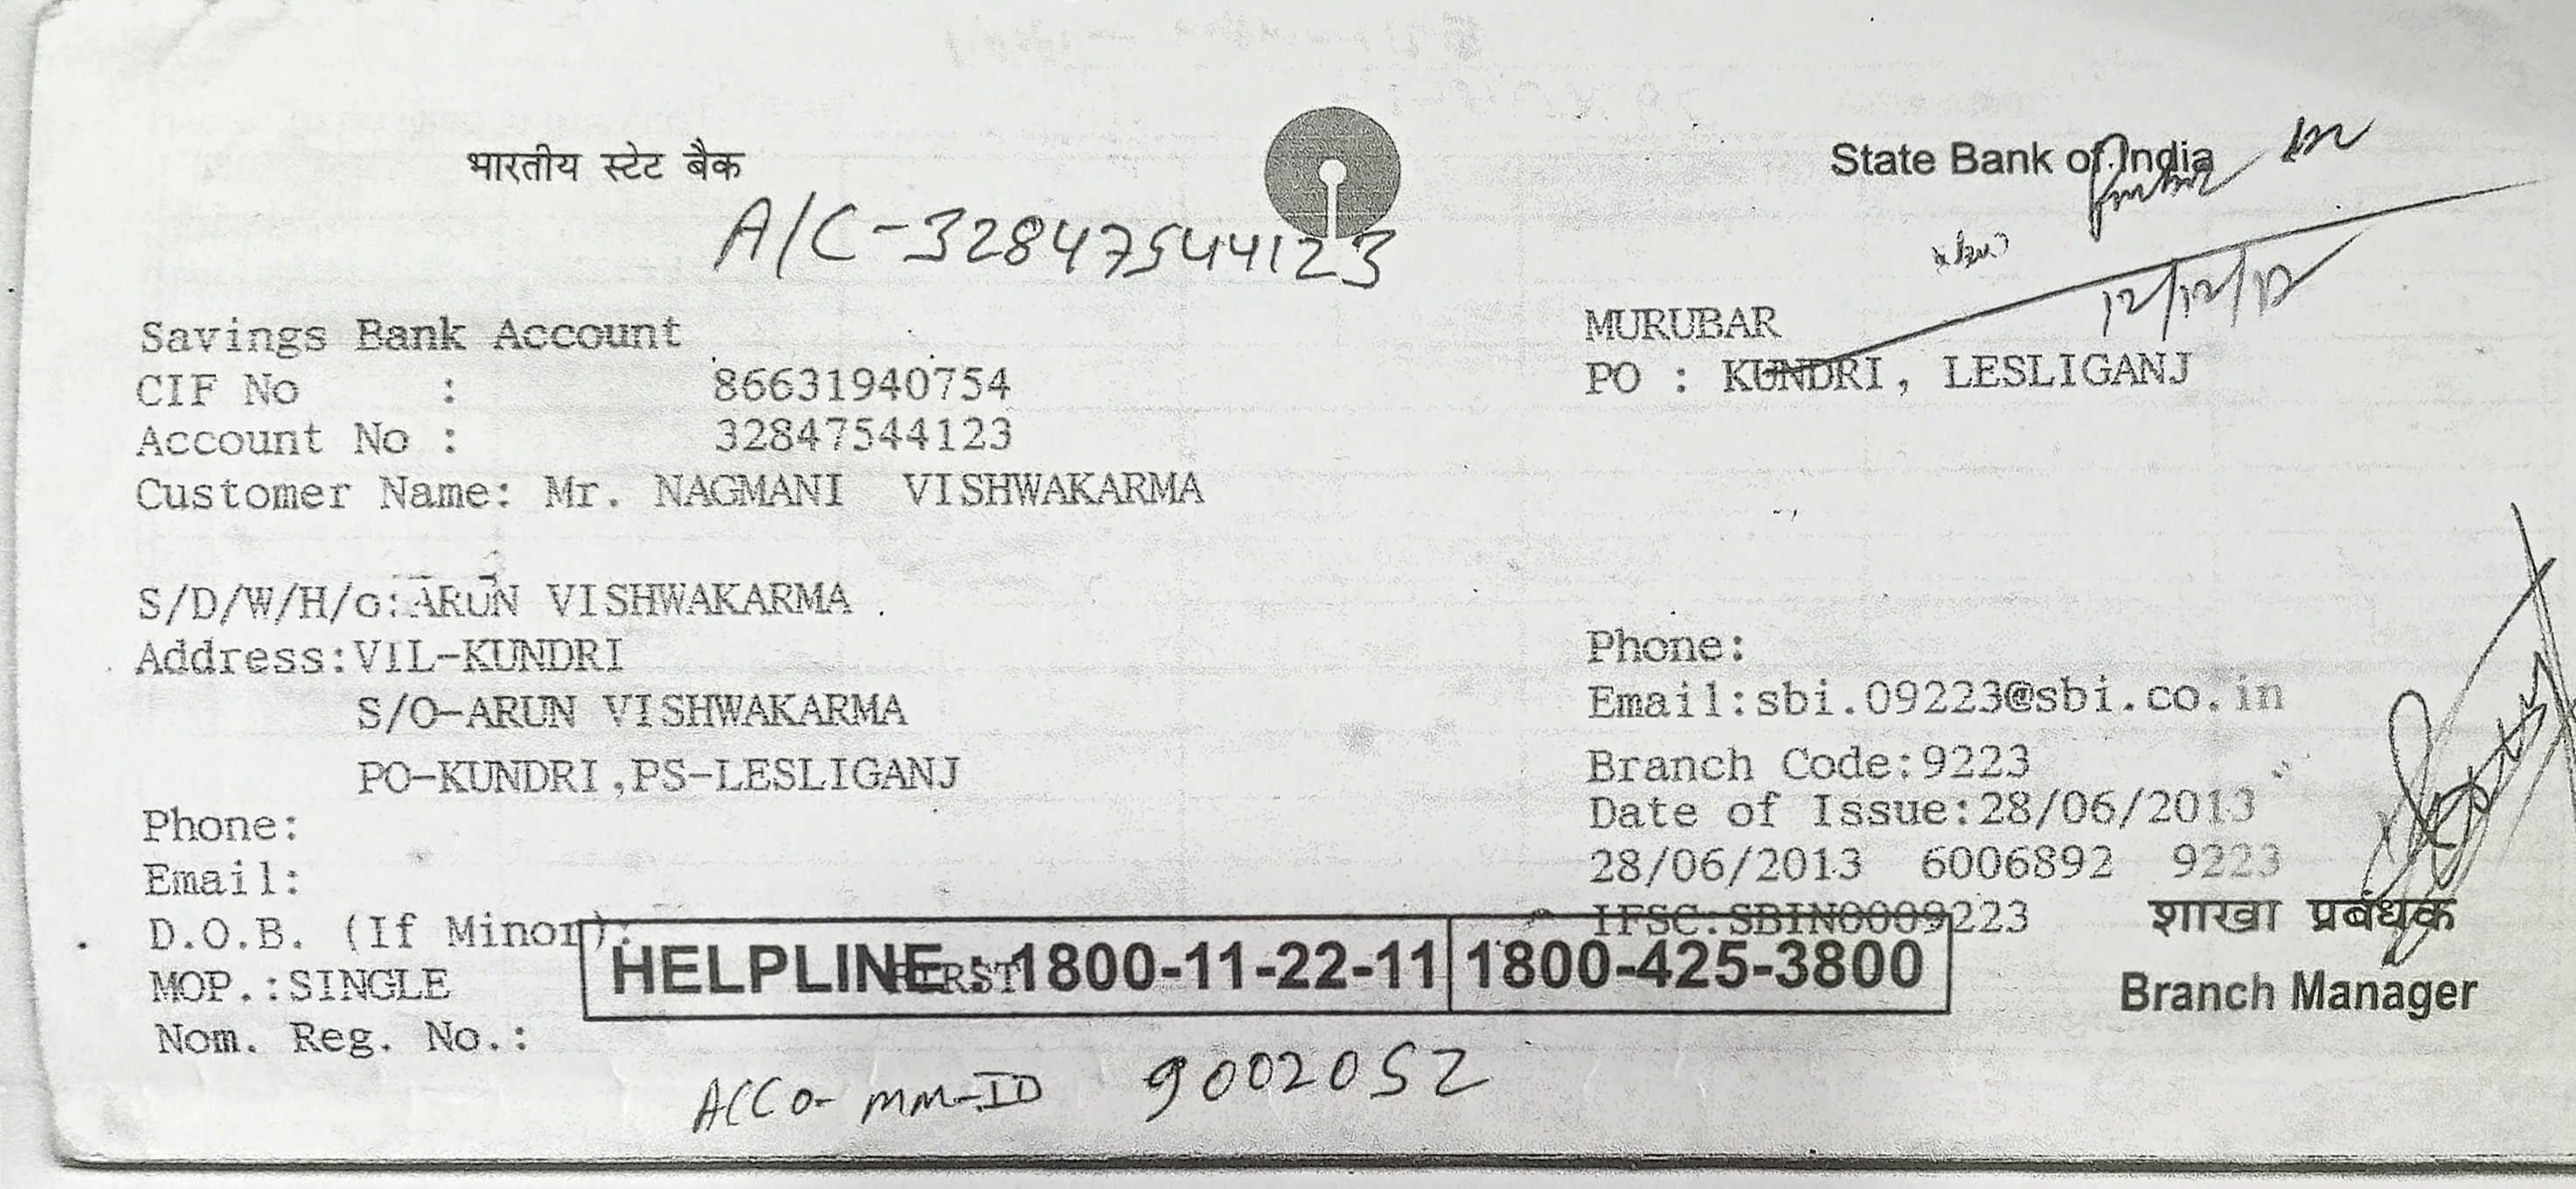 भारतीय स्टेट बैंक
State Bank of India
A/C-32847544123
12/12/12
Savings Bank Account
CIF No : 86631940754
Account No : 32847544123
Customer Name: Mr. NAGMANI VISHWAKARMA
MURUBAR
PO : KUNDRI, LESLIGANJ
S/D/W/H/o:ARUN VISHWAKARMA
Address:VIL-KUNDRI
S/O-ARUN VISHWAKARMA
PO-KUNDRI,PS-LESLIGANJ
Phone:
Email:
D.O.B. (If Minor):
MOP.:SINGLE
Nom. Reg. No.:
Phone:
Email:sbi.09223@sbi.co.in
Branch Code:9223
Date of Issue:28/06/2013
28/06/2013 6006892 9223
IFSC:SBIN0009223
शाखा प्रबंधक
Branch Manager
HELPLINE : 1800-11-22-11 1800-425-3800
MM-ID 9002052